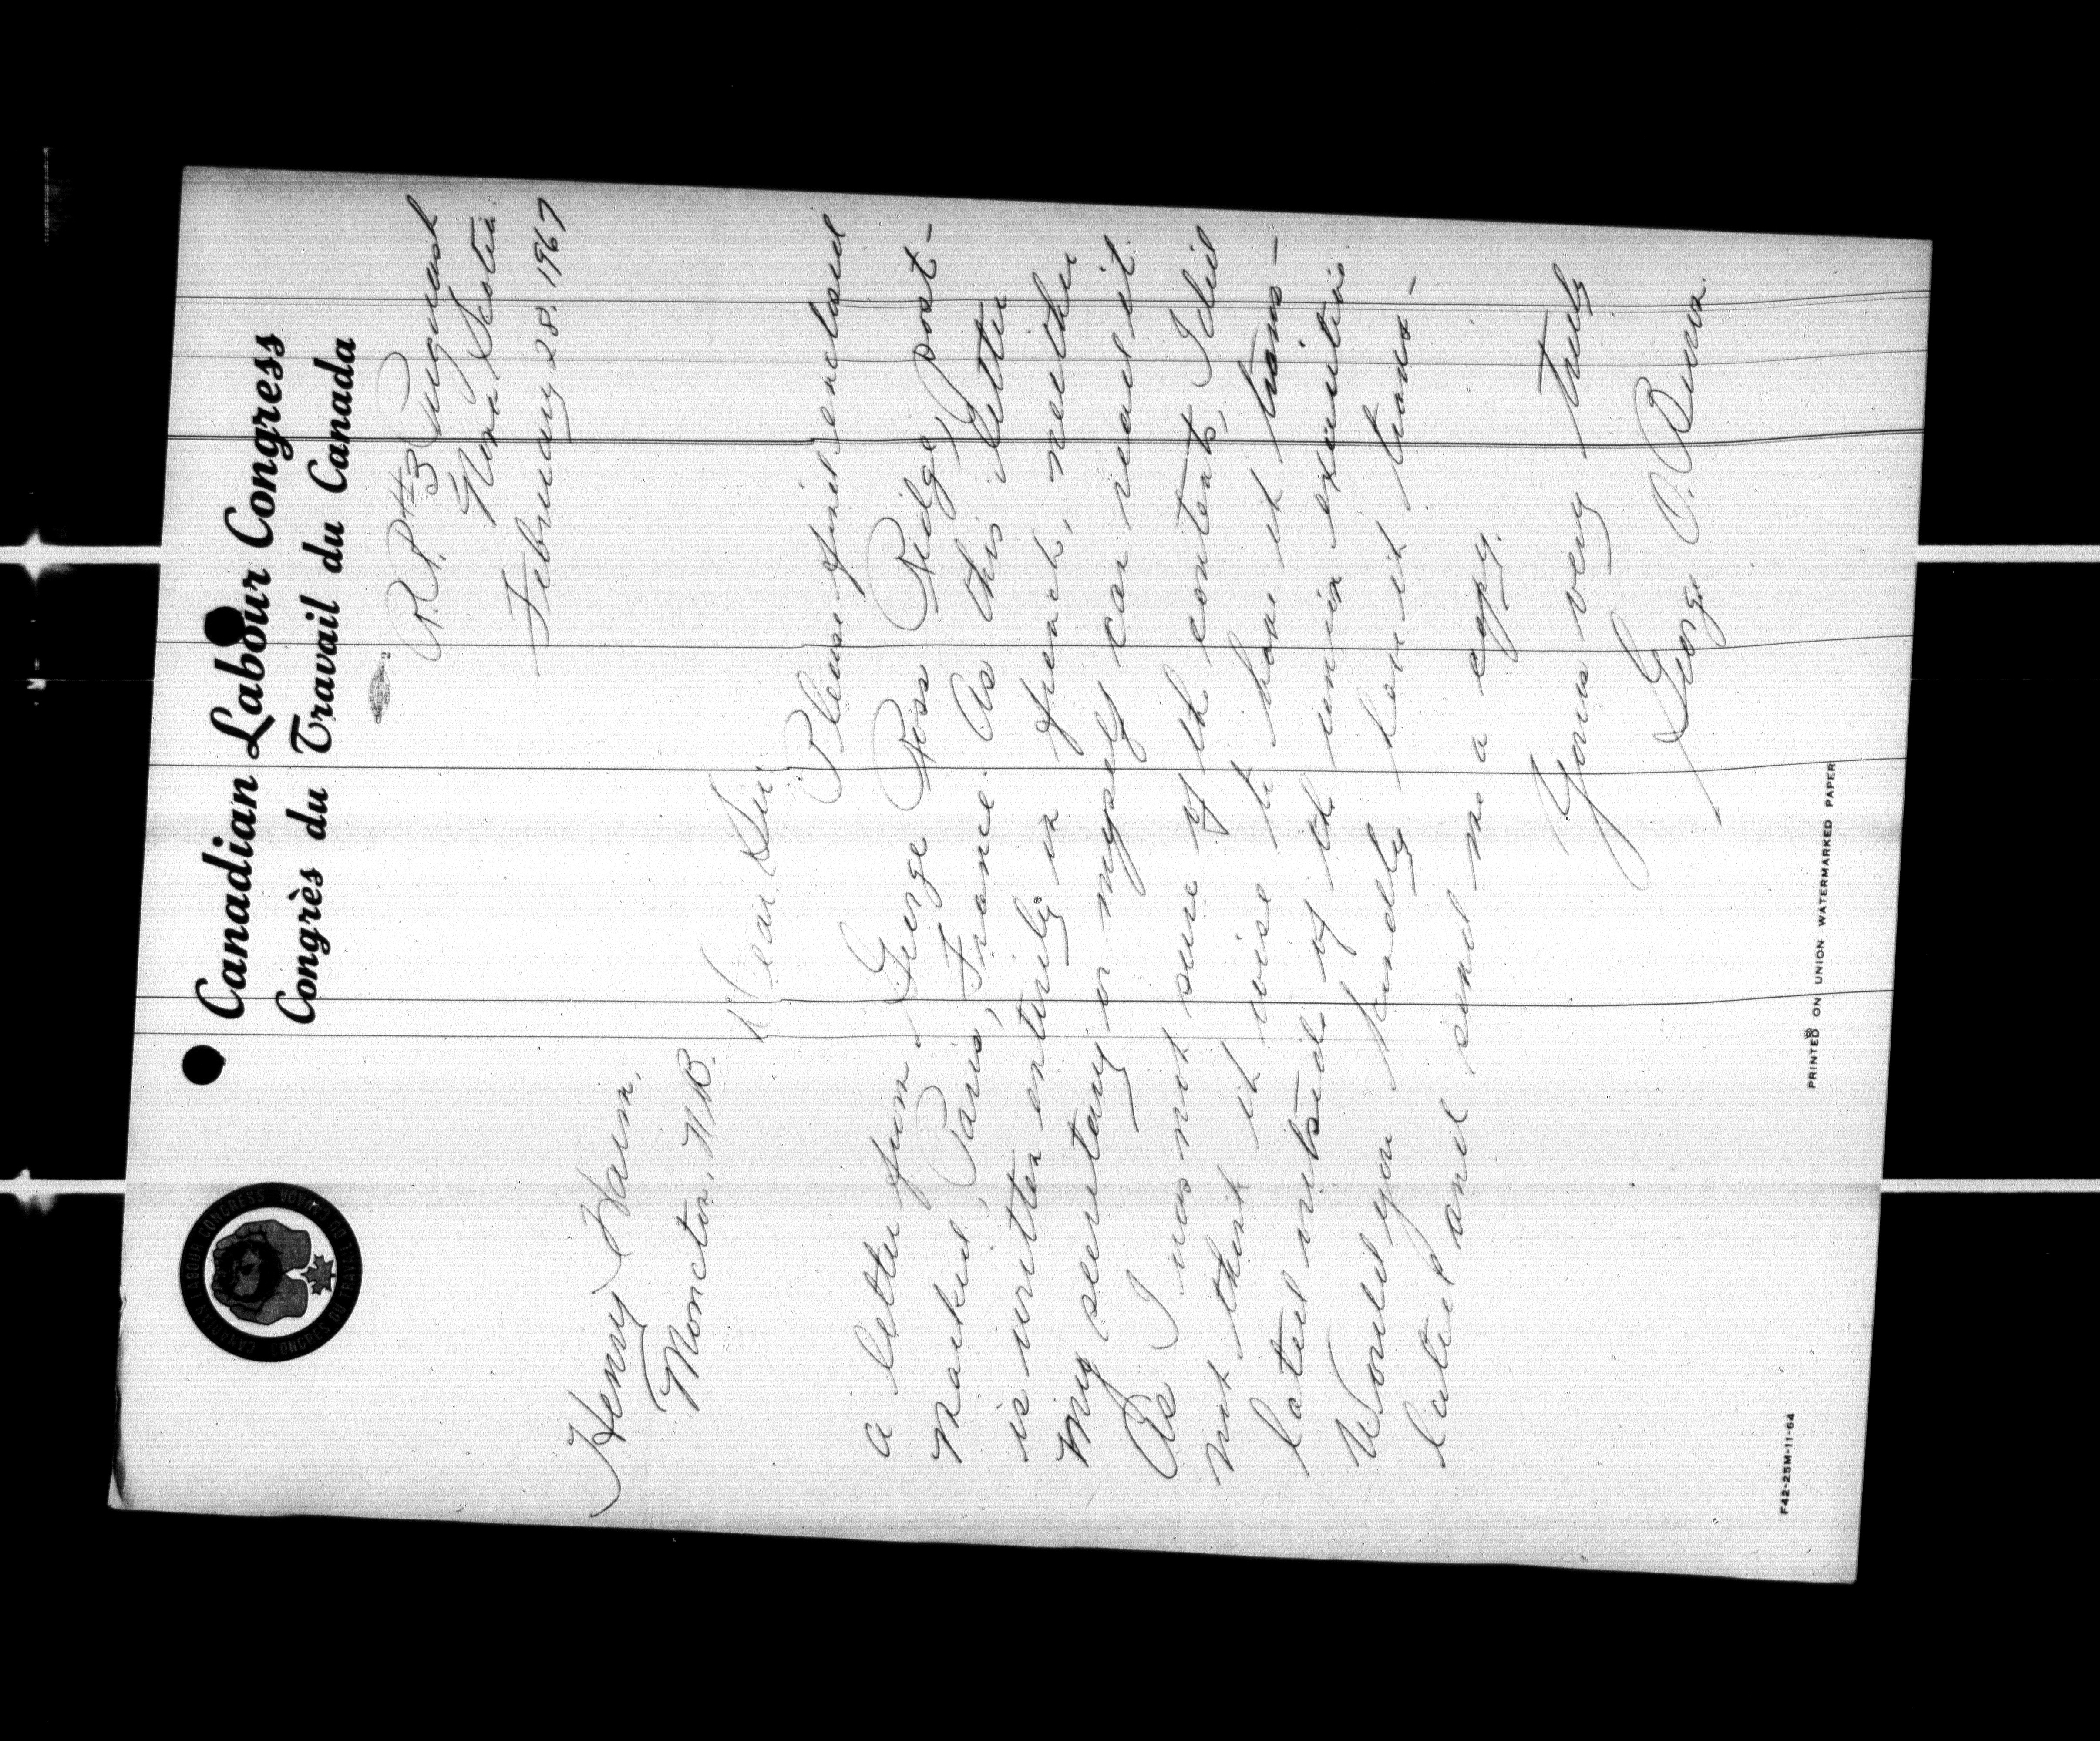 Canadian Labour Congress
Congrès du Travail du Canada
CANADIAN LABOUR CONGRESS
CONGRÈS DU TRAVAIL DU CANADA
R.R. #3 Pugwash
Nova Scotia.
February 28. 1967
Henry Harm,
Moncton, N.B.
Dear Sir
Please find enclosed
a letter from George Ross Ridge, Post-
marked, Paris, France. As this letter
is written entirely in french, neither
my secretary or myself can read it.
As I was not sure of the contents, I did
not think it wise to have it trans-
lated outside of the union executive.
Would you kindly have it trans-
lated and send me a copy.
Yours very truly
George O.
F42-25M-11-64
PRINTED ON UNION WATERMARKED PAPER